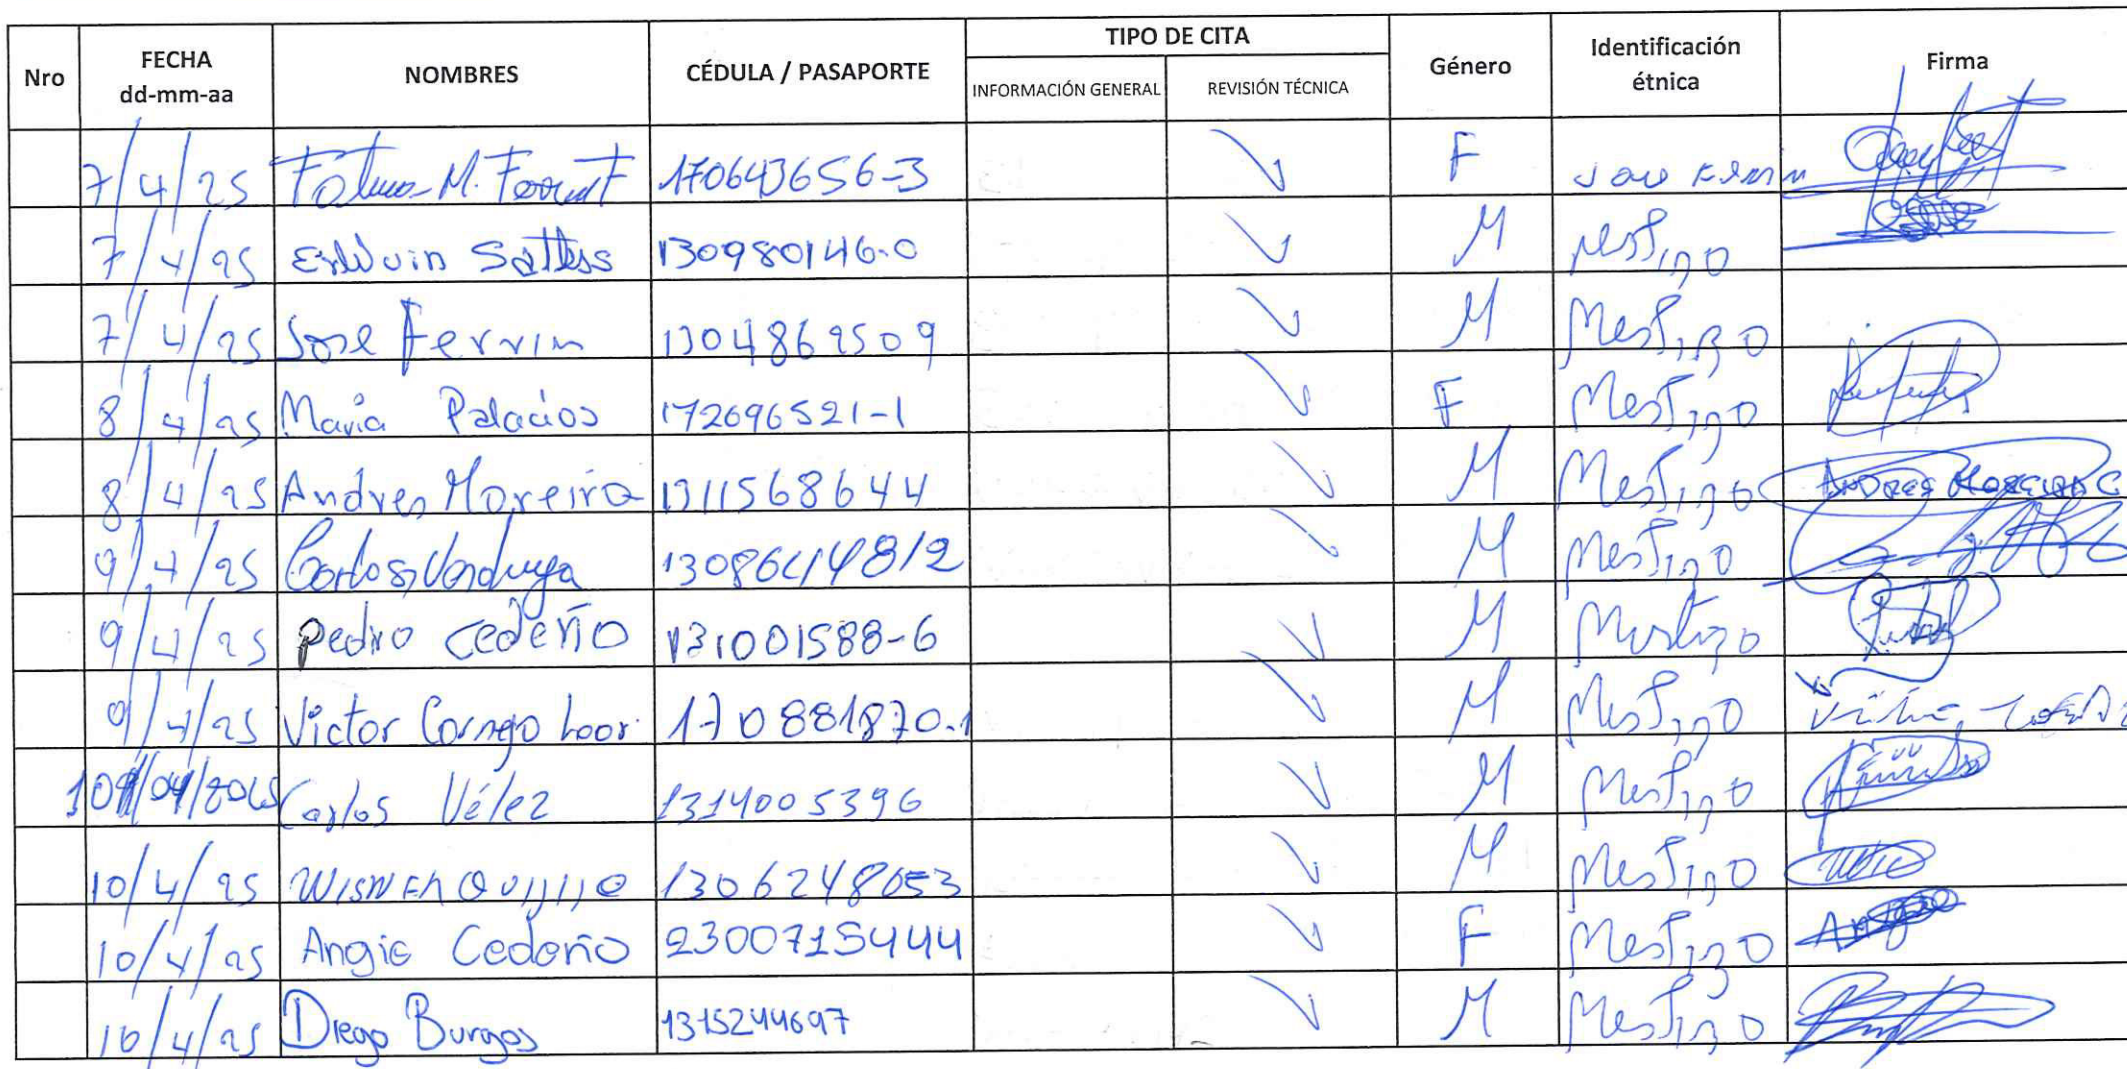 Nro FECHA dd-mm-aa NOMBRES CÉDULA / PASAPORTE TIPO DE CITA INFORMACIÓN GENERAL REVISIÓN TÉCNICA Género Identificación étnica Firma
7/4/25 M. 170643656-3 F
7/4/25 130980146-0 M Mestizo
7/4/25 Jose Ferrin 1304869509 M Mestizo
8/4/25 María Palacios 172696521-1 F Mestizo
8/4/25 Andres Moreira 1311568644 M Mestizo Andres Moreira C
9/4/25 Carlos Verduga M Mestizo
9/4/25 Pedro Cedeño 131001588-6 M Mestizo
9/4/25 Victor Cornejo Loor 170881870-1 M Mestizo
Carlos Vélez 1314005396 M Mestizo
10/4/25 1306248053 M Mestizo
10/4/25 Angie Cedeño 2300715444 F Mestizo
10/4/25 Diego Burgos 1315244697 M Mestizo